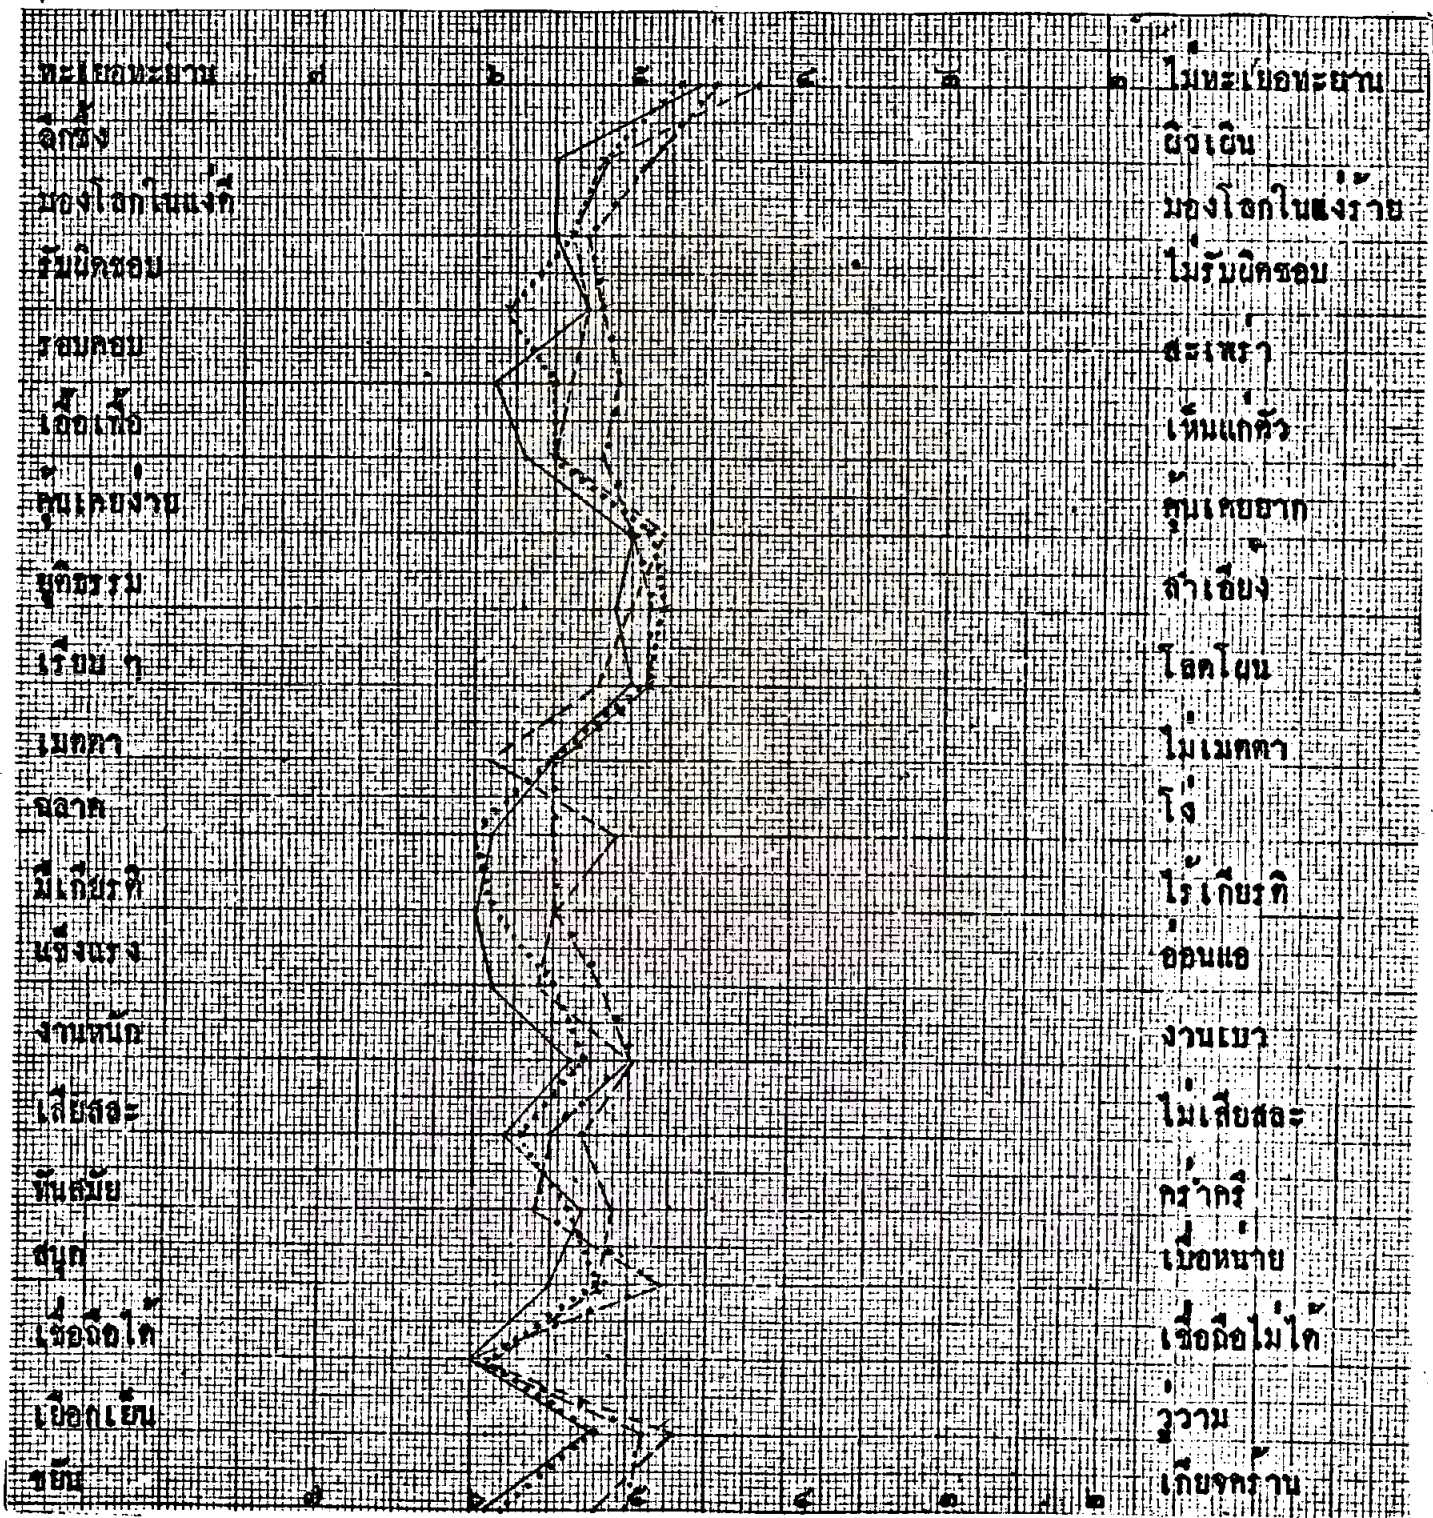 ทะเยอทะยาน ๗ ๖ ๕ ๔ ๓ ๒ ไม่ทะเยอทะยาน
ลึกซึ้ง ผิวเผิน
มองโลกในแง่ดี มองโลกในแง่ร้าย
รับผิดชอบ ไม่รับผิดชอบ
รอบคอบ สะเพร่า
เอื้อเฟื้อ เห็นแก่ตัว
คุ้นเคยง่าย คุ้นเคยยาก
ยุติธรรม ลำเอียง
เรียบ ๆ โลดโผน
เมตตา ไม่เมตตา
ฉลาด โง่
มีเกียรติ ไร้เกียรติ
แข็งแรง อ่อนแอ
งานหนัก งานเบา
เสียสละ ไม่เสียสละ
ทันสมัย คร่ำครึ
สนุก เบื่อหน่าย
เชื่อถือได้ เชื่อถือไม่ได้
เยือกเย็น วู่วาม
ขยัน ๗ ๖ ๕ ๔ ๓ ๒ เกียจคร้าน